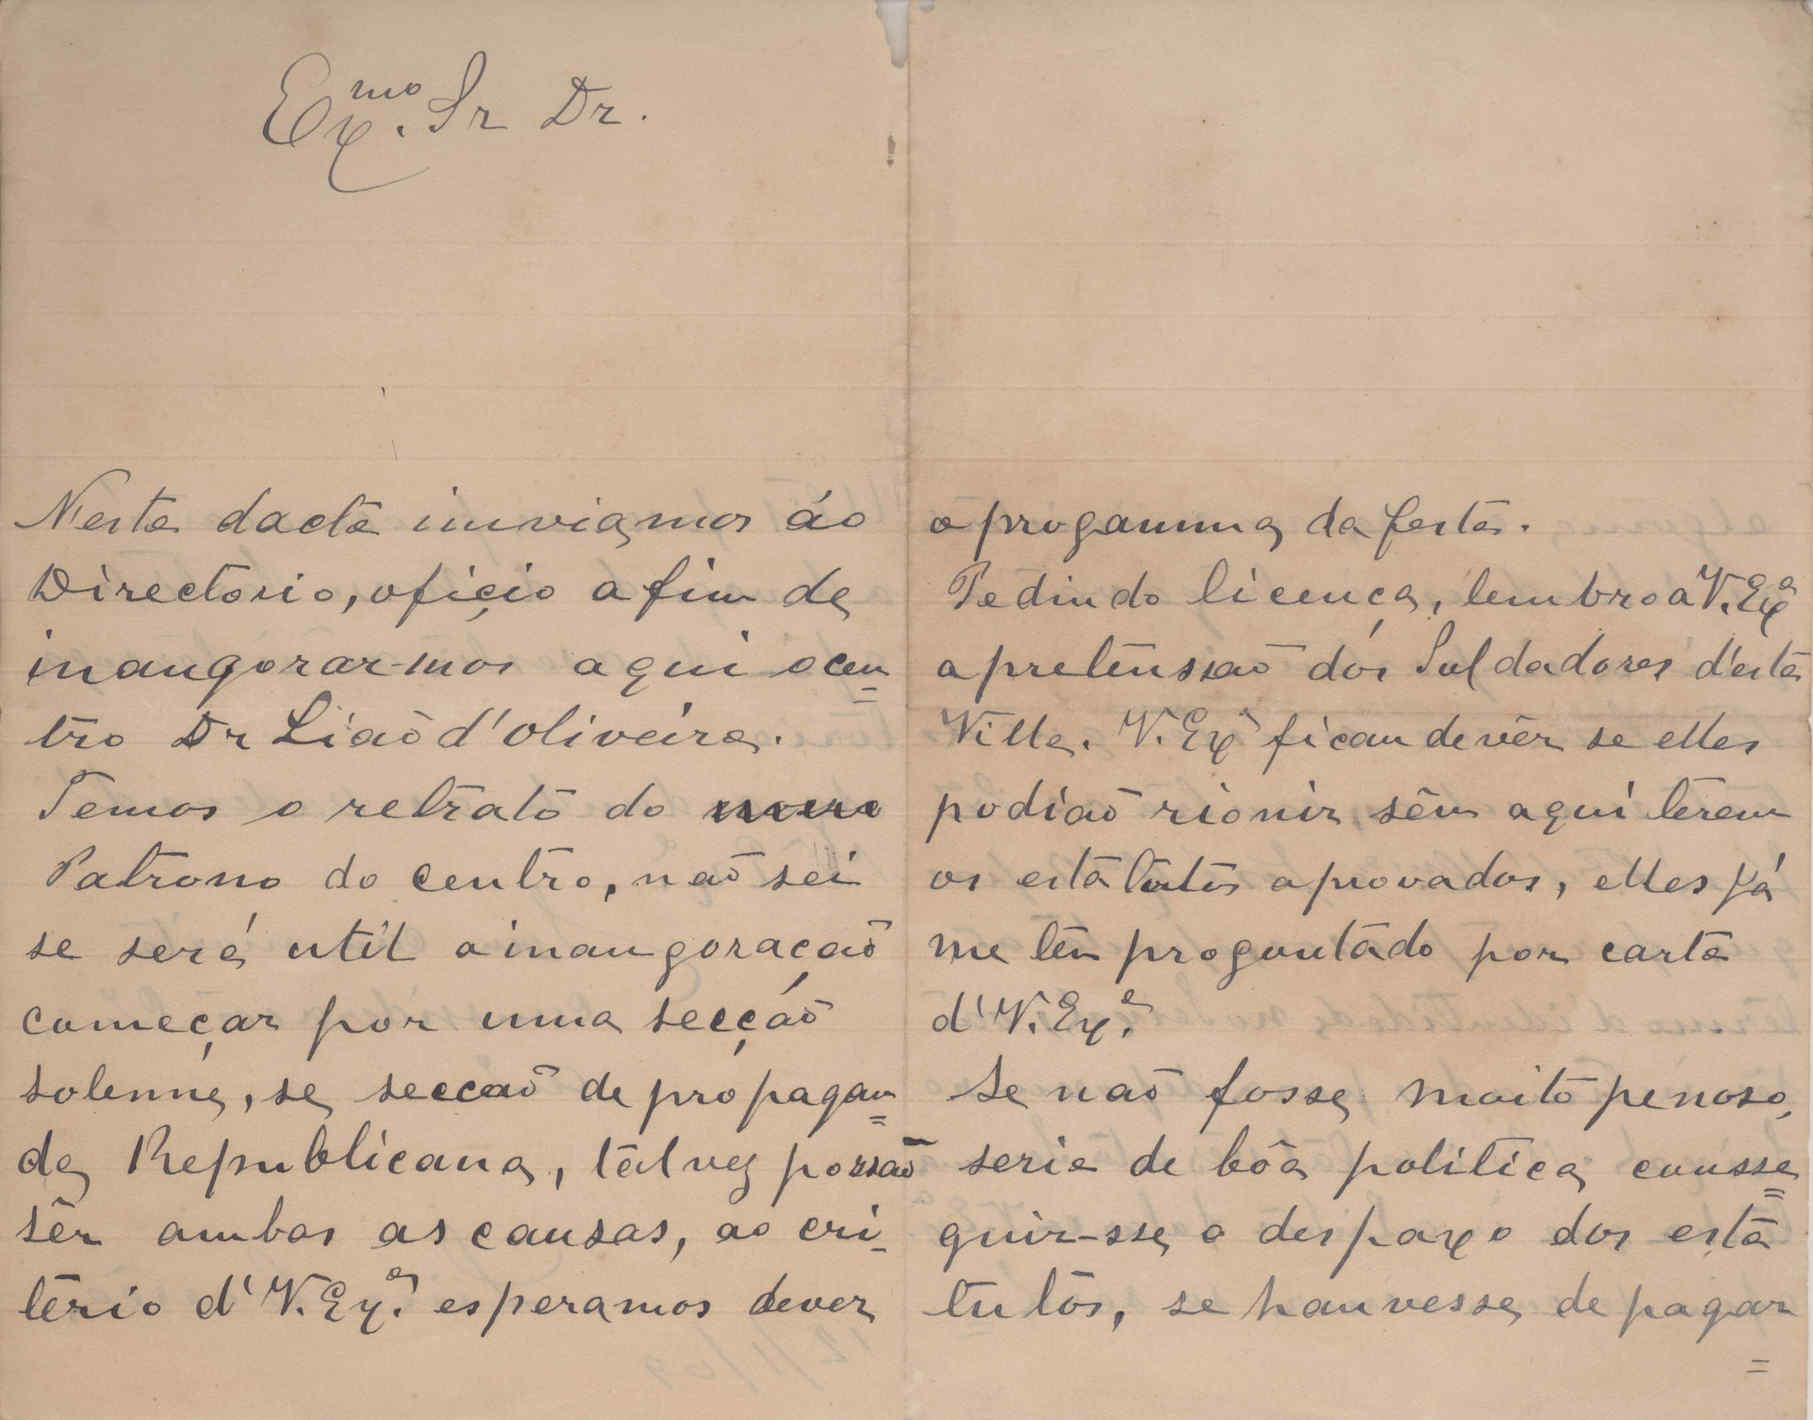 Ex.mo Sr Dr.
Nesta dacta inviamos áo
Directorio, oficio a fim de
inaugorar-mos aqui o cen=
tro Dr Lião d'oliveira.
Temos o retrato do
Patrono do centro, não sei
se será util a inaugoracão
começar por uma secção
solenne, se seccão de propagan=
da Republicana, talvez possão
sêr ambas as causas, ao cri-
tério d'V. Ex.a esperamos dever
o progamma da festa.
Pedindo licença, lembro a V. Exa
a pretênssão dós Suldadores d'esta
Villa. V. Exa ficau de vêr se elles
podião rionir, sêm aqui terem
os estatutos aprovados, elles já
me tên proguntado por carta
d'V. Ex.a
Se não fosse moito penoso,
seria de bôa politica consse=
guir-sse o despaxo dos esta
tutos, se hauvesse de pagar
=